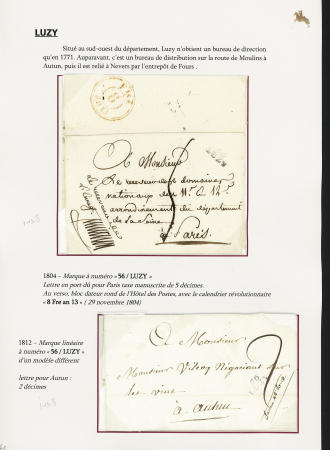 LUZY
Situé au sud-ouest du département, Luzy n'obtient un bureau de direction
qu'en 1771. Auparavant, c'est un bureau de distribution sur la route de Moulins à
Autun, puis il est relié à Nevers par l'entrepôt de Fours .
A Monsieur
Le receveur des domaines
nationaux des
arrondissement du département
de la Seine
à Paris.
1804 – Marque à numéro « 56 / LUZY »
Lettre en port dû pour Paris taxe manuscrite de 5 décimes.
Au verso, bloc dateur rond de l'Hôtel des Postes, avec le calendrier révolutionnaire
« 8 Fre an 13 » ( 29 novembre 1804)
1812 – Marque linéaire
à numéro « 56 / LUZY »
d'un modèle différent
lettre pour Autun :
2 décimes
A Monsieur
Monsieur Négociant sur
les
à autun